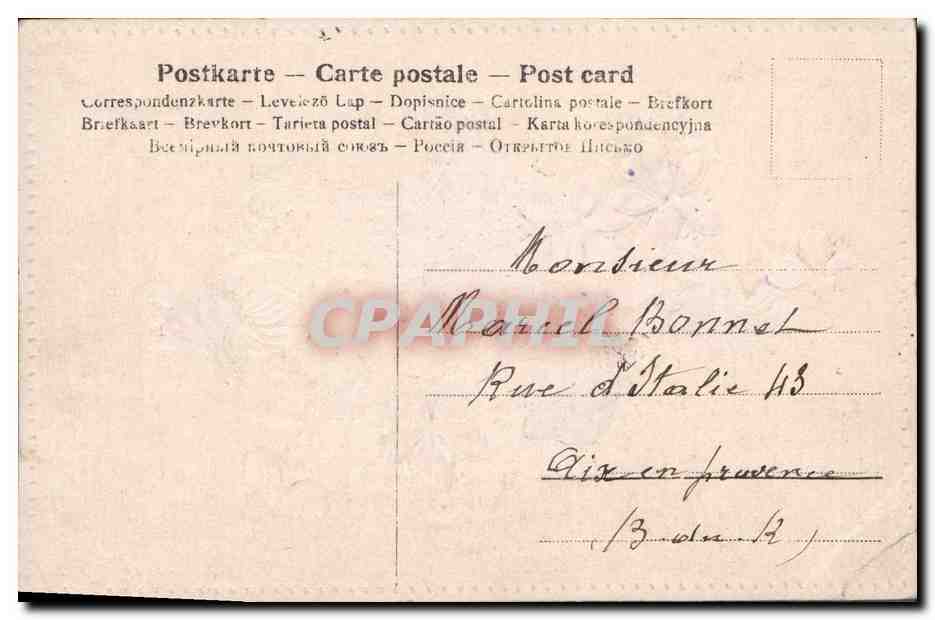 Postkarte — Carte postale — Post card
Correspondenzkarte – Levelező Lap – Dopisnice – Cartolina postale – Brefkort
Briefkaart – Brevkort – Tarjeta postal – Cartão postal – Karta korespondencyjna
Всемірный почтовый союзъ – Россія – Открытое Письмо
Monsieur
CPAPHIL
Marcel Bonnet
Rue d'Italie 43
Aix en provence
(B du R)